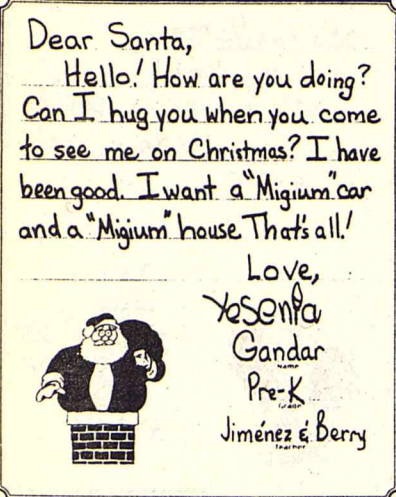 Dear Santa,
Hello! How are you doing?
Can I hug you when you come
to see me on Christmas? I have
been good. I want a "Migium" car
and a "Migium" house. That's all!
Love,
Yesenia
Gandar
Name
Pre-K
Grade
Jiménez & Berry
Teacher